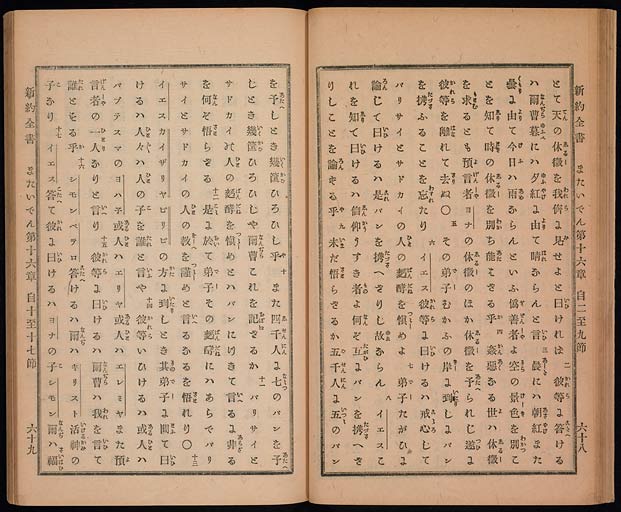 新約全書 またいでん第十六章 自二至九節 六十八
とて天の休徴を我儕に見せよと曰ければ 二 彼等に答ける
ハ爾曹暮にハ夕紅に由て晴ならんと言 三 晨にハ朝紅また
曇に由て今日ハ雨ならんといふ偽善者よ空の景色を別こ
とを知て時の休徴を別ち能ざる乎 四 姦悪なる世ハ休徴
を求るとも預言者ヨナの休徴のほか休徴を予られじ遂に
彼等を離れて去ぬ〇 五 その弟子むかふの岸に到しにパン
を携ふることを忘たり 六 イエス彼等に曰けるハ戒心して
パリサイとサドカイの人の麪酵を愼めよ 七 弟子たがひに
論じて曰けるハ是パンを携へざりし故ならん 八 イエスこ
れを知て曰けるハ信仰うすき者よ何ぞ互にパンを携へざ
りしことを論ずる乎 九 未だ悟らざるか五千人に五のパン
を予しとき幾筐ひろひし乎 十 また四千人に七のパンを予
しとき幾筐ひろひしや爾曹これを記ざるか 十一 パリサイと
サドカイの人の麪酵を愼めとハパンに付きて言るに非る
を何ぞ悟らざる 十二 是に於て弟子その麪酵にハあらでパリ
サイとサドカイの人の教を謹めと言るなるを悟れり〇 十三
イエスカイザリヤピリピの方に到しとき其弟子に問て曰
けるハ人々ハ人の子を誰と言や 十四 彼等いひけるハ或人ハ
バプテスマのヨハネ或人ハエリヤ或人ハエレミヤまた預
言者の一人なりと言り 十五 彼等に曰けるハ爾曹ハ我を言て
誰とする乎 十六 シモンペテロ答けるハ爾ハキリスト活神の
子なり 十七 イエス答て彼に曰けるハヨナの子シモン爾ハ福
新約全書 またいでん第十六章 自十至十七節 六十九